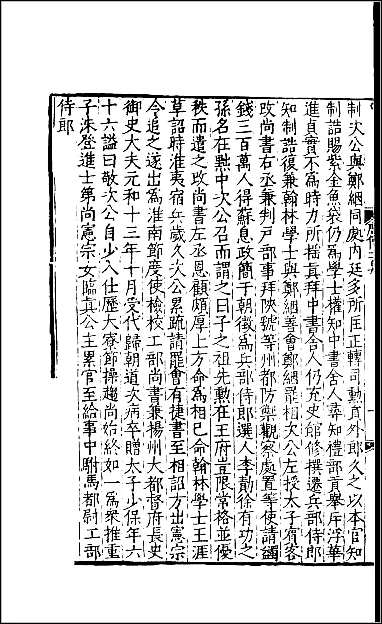 制次公與鄭絪同處內廷多所匡正轉司勳員外郎久之以本官知
制誥賜紫金魚袋仍為學士權知中書舍人尋知禮部貢舉斥浮華
進貞實不為時力所搖真拜中書舍人仍充史館修撰遷兵部侍郎
知制誥復兼翰林學士與鄭絪善會鄭絪罷相次公左授太子賓客
改尚書右丞兼判戶部事拜陝虢等州都防禦觀察處置等使請蠲
錢三百萬人得蘇息政簡于朝徵為兵部侍郎選人李勣徐有功之
孫名在黜中次公召而謂之曰子之祖先勳在王府豈限常格並優
秩而遣之改尚書左丞恩顧頗厚上方命為相已命翰林學士王涯
草詔時淮夷宿兵歲久次公累疏請罷會有捷書至相詔方出憲宗
令追之遂出為淮南節度使檢校工部尚書兼揚州大都督府長史
御史大夫元和十三年十月受代歸朝道次病卒贈太子少保年六
十六謚曰敬次公自少入仕歷大寮節操趨尚始終如一為衆推重
子洙登進士第尚憲宗女臨真公主累官至給事中駙馬都尉工部
侍郎